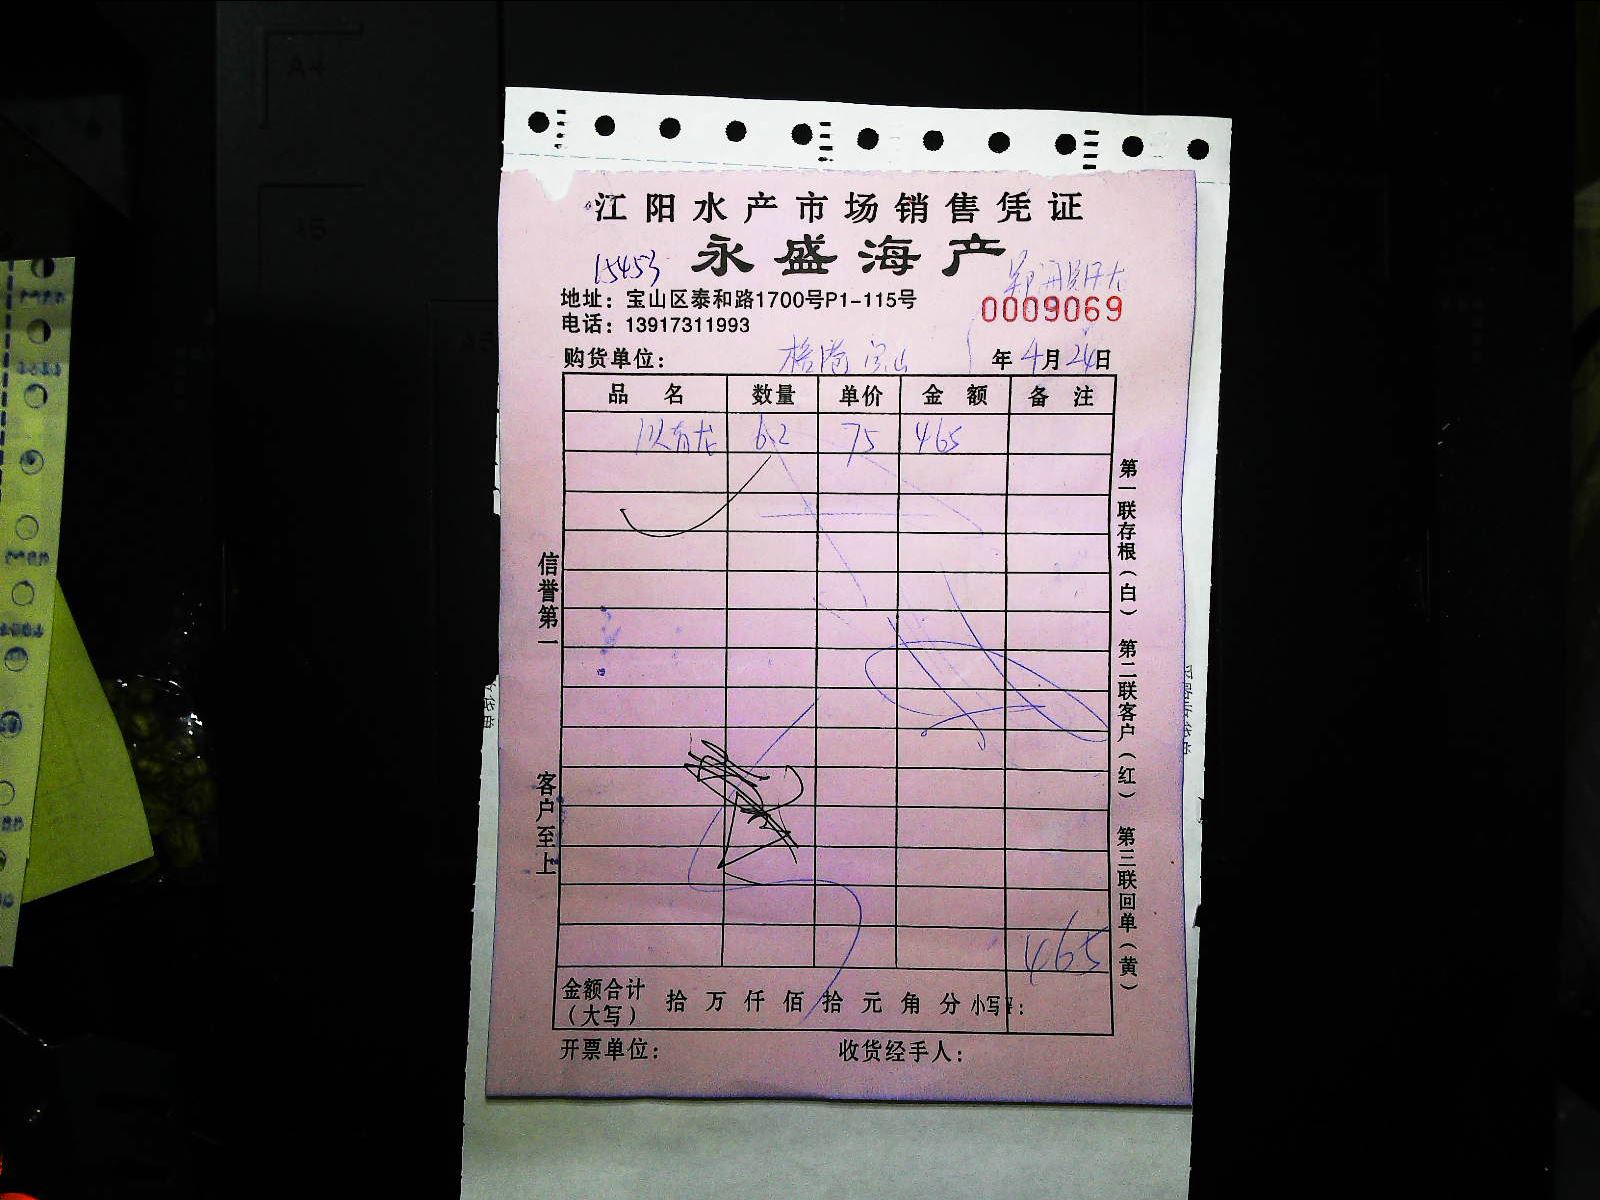 江阳水产市场销售凭证
永盛海产
15453
地址：宝山区泰和路1700号P1-115号
电话：13917311993
0009069
购货单位： 宝山 年 4月 24日
品名 数量 单价 金额 备注
6.2 75 465
465
信誉第一
客户至上
第一联存根（白） 第二联客户（红） 第三联回单（黄）
金额合计（大写） 拾 万 仟 佰 拾 元 角 分 小写¥：
开票单位： 收货经手人：